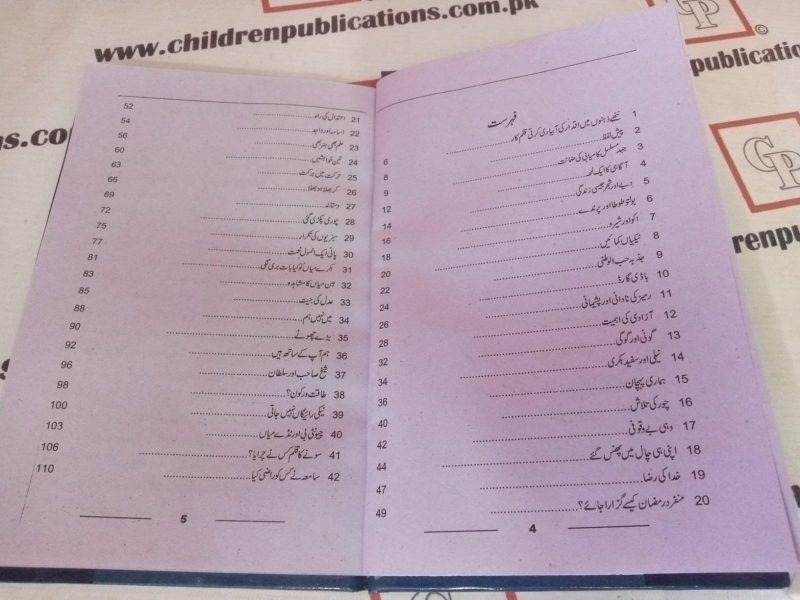 www.childrenpublications.com.pk
publications
gs.com.pk
GP
©
renpublic
فہرست
1 ننھے ذہنوں میں اقدار کی آبیاری کرتی قلم کار 6
2 پیش لفظ 8
3 جہد مسلسل کامیابی کی ضمانت 9
4 آگاہی کا ایک لمحہ 12
5 دیے اور شجر جیسی زندگی 14
6 بولتا طوطا اور پرندے 16
7 اکو اور شیرو 18
8 نیکیاں کمائیں 20
9 جذبہ حب الوطنی 22
10 باڈی گارڈ 24
11 رمیز کی نادانی اور پشیمانی 26
12 آزادی کی اہمیت 28
13 گونی اور گوگی 32
14 نیلی اور سفید بکری 34
15 ہماری پہچان 36
16 چور کی تلاش 40
17 وہی بے وقوفی 42
18 اپنی ہی چال میں پھنس گئے 44
19 خدا کی رضا 47
20 منفرد رمضان کیسے گزارا جائے؟ 49
4
21 اعتدال کی راہ 52
22 اسامہ اور واجد 54
23 علم بھی ہنر بھی 56
24 تین خواہشیں 60
25 حرکت میں برکت 63
26 کر بھلا ہو بھلا 66
27 دستانہ 69
28 چوری پکڑی گئی 72
29 سبزیوں کی تکرار 75
30 پانی ایک انمول نعمت 77
31 بکرے میاں کو کیا بات بری لگی 81
32 مین میاں کا مشاہدہ 83
33 عدل کی جیت 85
34 میں نہیں ہم 88
35 بڑے چھوٹے 90
36 ہم آپ کے ساتھ ہیں 92
37 شیخ صاحب اور سلطان 96
38 طاقت ور کون؟ 98
39 نیکی رائیگاں نہیں جاتی 100
40 چیونٹی بی اور ٹنڈے میاں 103
41 سونے کا قلم کس نے چرایا؟ 106
42 سامعہ نے کس کو راضی کیا 110
5